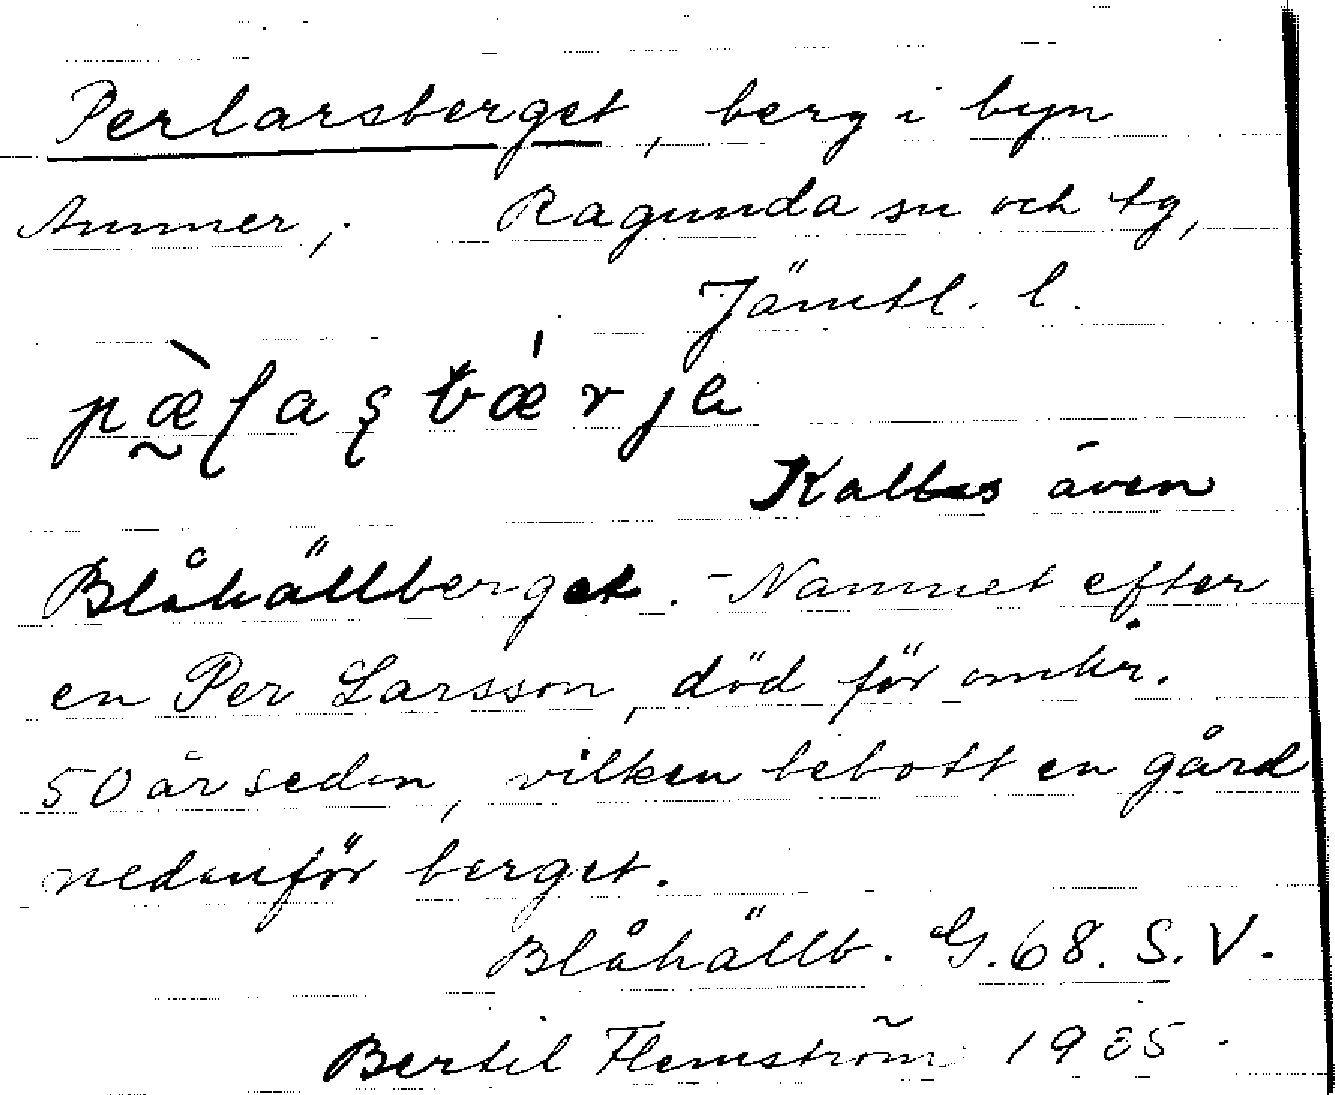 Perlarsberget, berg i byn
Ammer, Ragunda sn och tg,
Jämtl. l.
Kallas även
Blåhällberget. - Namnet efter
en Per Larsson, död för omkr.
50 år sedan, vilken bebott en gård
nedanför berget.
Blåhällb. G. 68. S. V.
Bertil Flemström 1935.